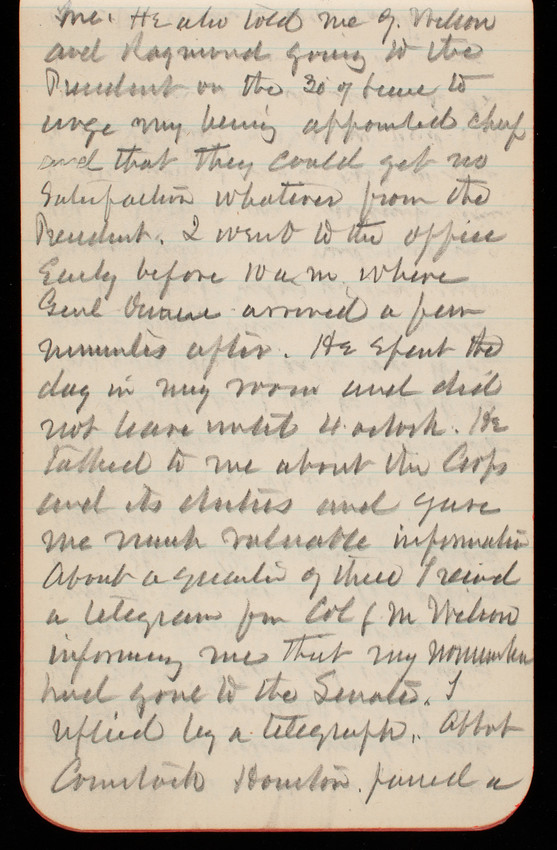 me. He also told me of Wilson
and Raymond going to the
President on the 30 of June to
urge my being appointed chief
and that they could get no
satisfaction whatever from the
President. I went to the office
Early before 10 a m where
Genl Duane arrived a few
minutes after. He spent the
day in my room and did
not leave until 4 oclock. He
talked to me about the Corps
and its duties and gave
me much valuable information
About a quarter of three I recived
a telegram fm Col J M Wilson
informing me that my nomination
had gone to the Senate. I
replied by a telegraph. Abbot
Comstock Houston